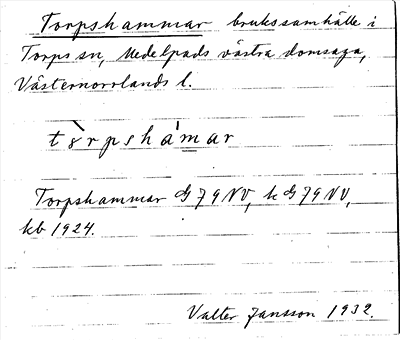 Torpshammar brukssamhälle i
Torps sn, Medelpads västra domsaga,
Västernorrlands l.
tɤ̀rpshàmar
Torpshammar G 79 NV, k G 79 NV,
kb 1924.
Valter Jansson 1932.